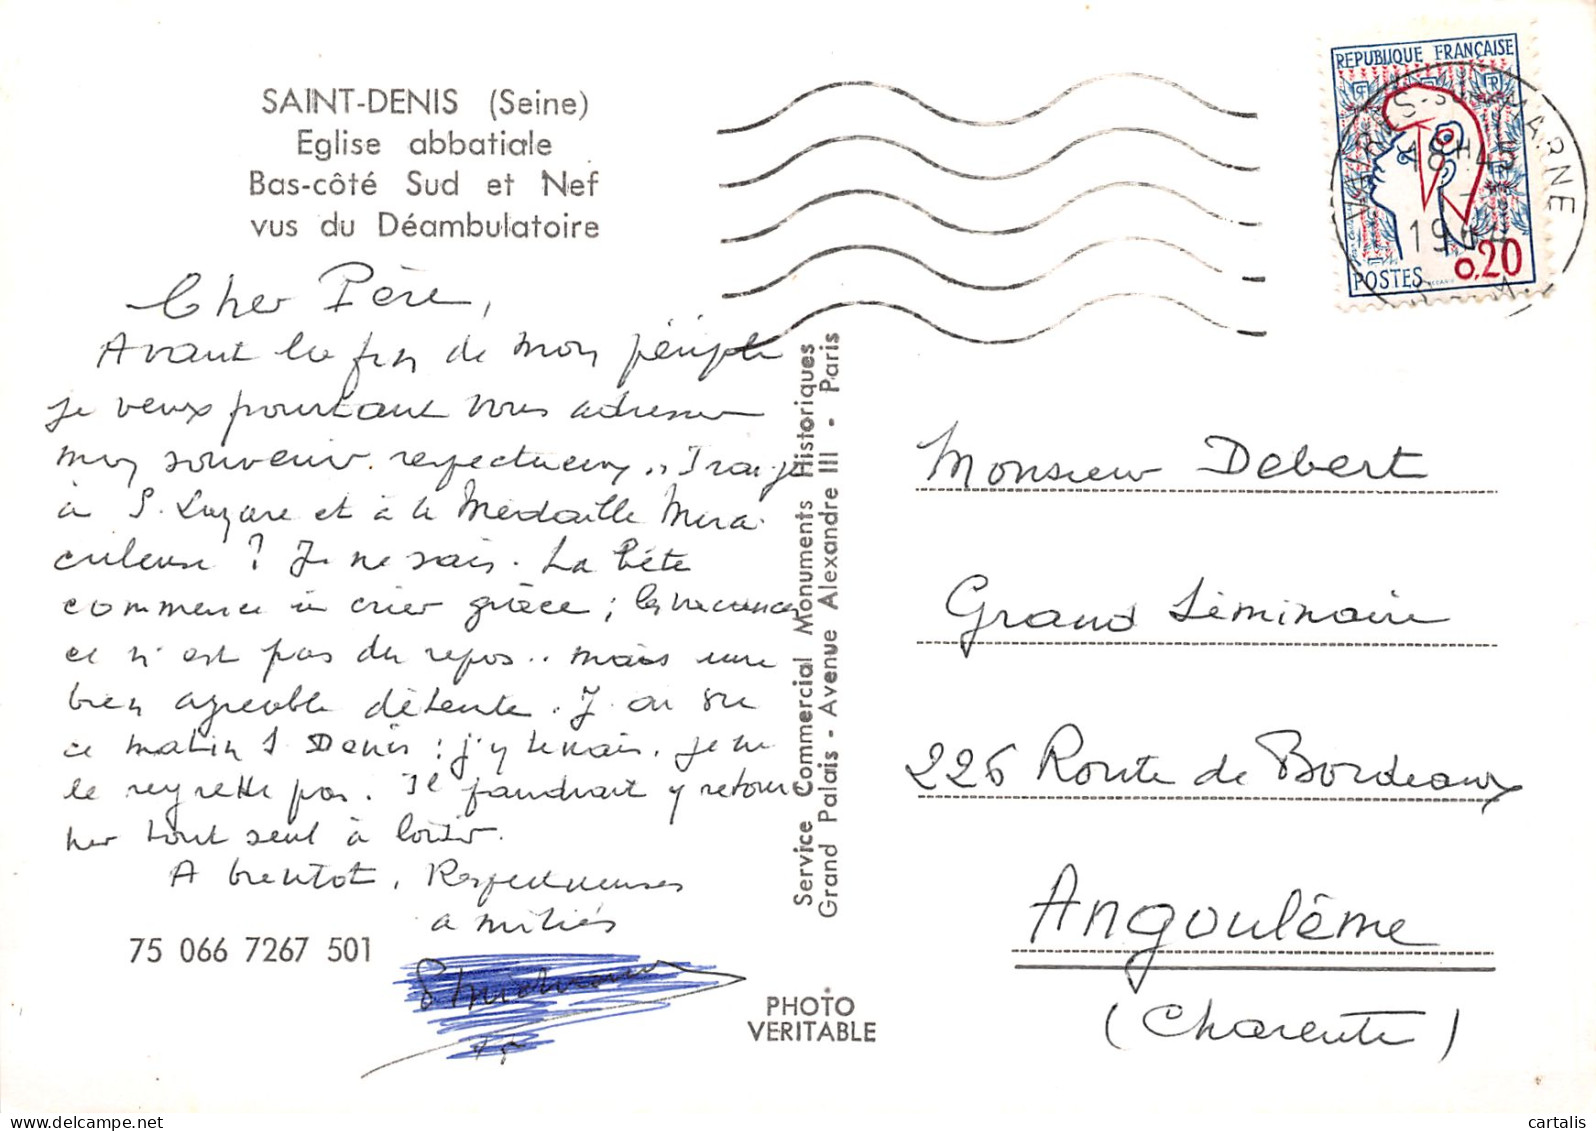 SAINT-DENIS (Seine)
Eglise abbatiale
Bas-côté Sud et Nef
vus du Déambulatoire
Cher Père,
Avant la fin de mon périple
je veux pourtant vous adresser
mon souvenir respectueux.. Irai-je
à S. Lazare et à la Médaille Mira-
culeuse ? Je ne sais. La bête
commence à crier grâce ; les vacances
ce n'est pas du repos.. mais une
bien agréable détente. J'ai vu
ce matin S Denis : j'y tenais. je ne
le regrette pas. Il faudrait y retour
ner tout seul à loisir.
A bientôt. Respectueuses
amitiés
75 066 7267 501
Service Commercial Monuments Historiques
Grand Palais - Avenue Alexandre III - Paris
PHOTO
VERITABLE
REPUBLIQUE FRANÇAISE
POSTES
0,20
VAIRES-SUR-MARNE
18H45
19
Monsieur Debert
Grand Séminaire
226 Route de Bordeaux
Angoulême
(Charente)
cartalis
delcampe.net